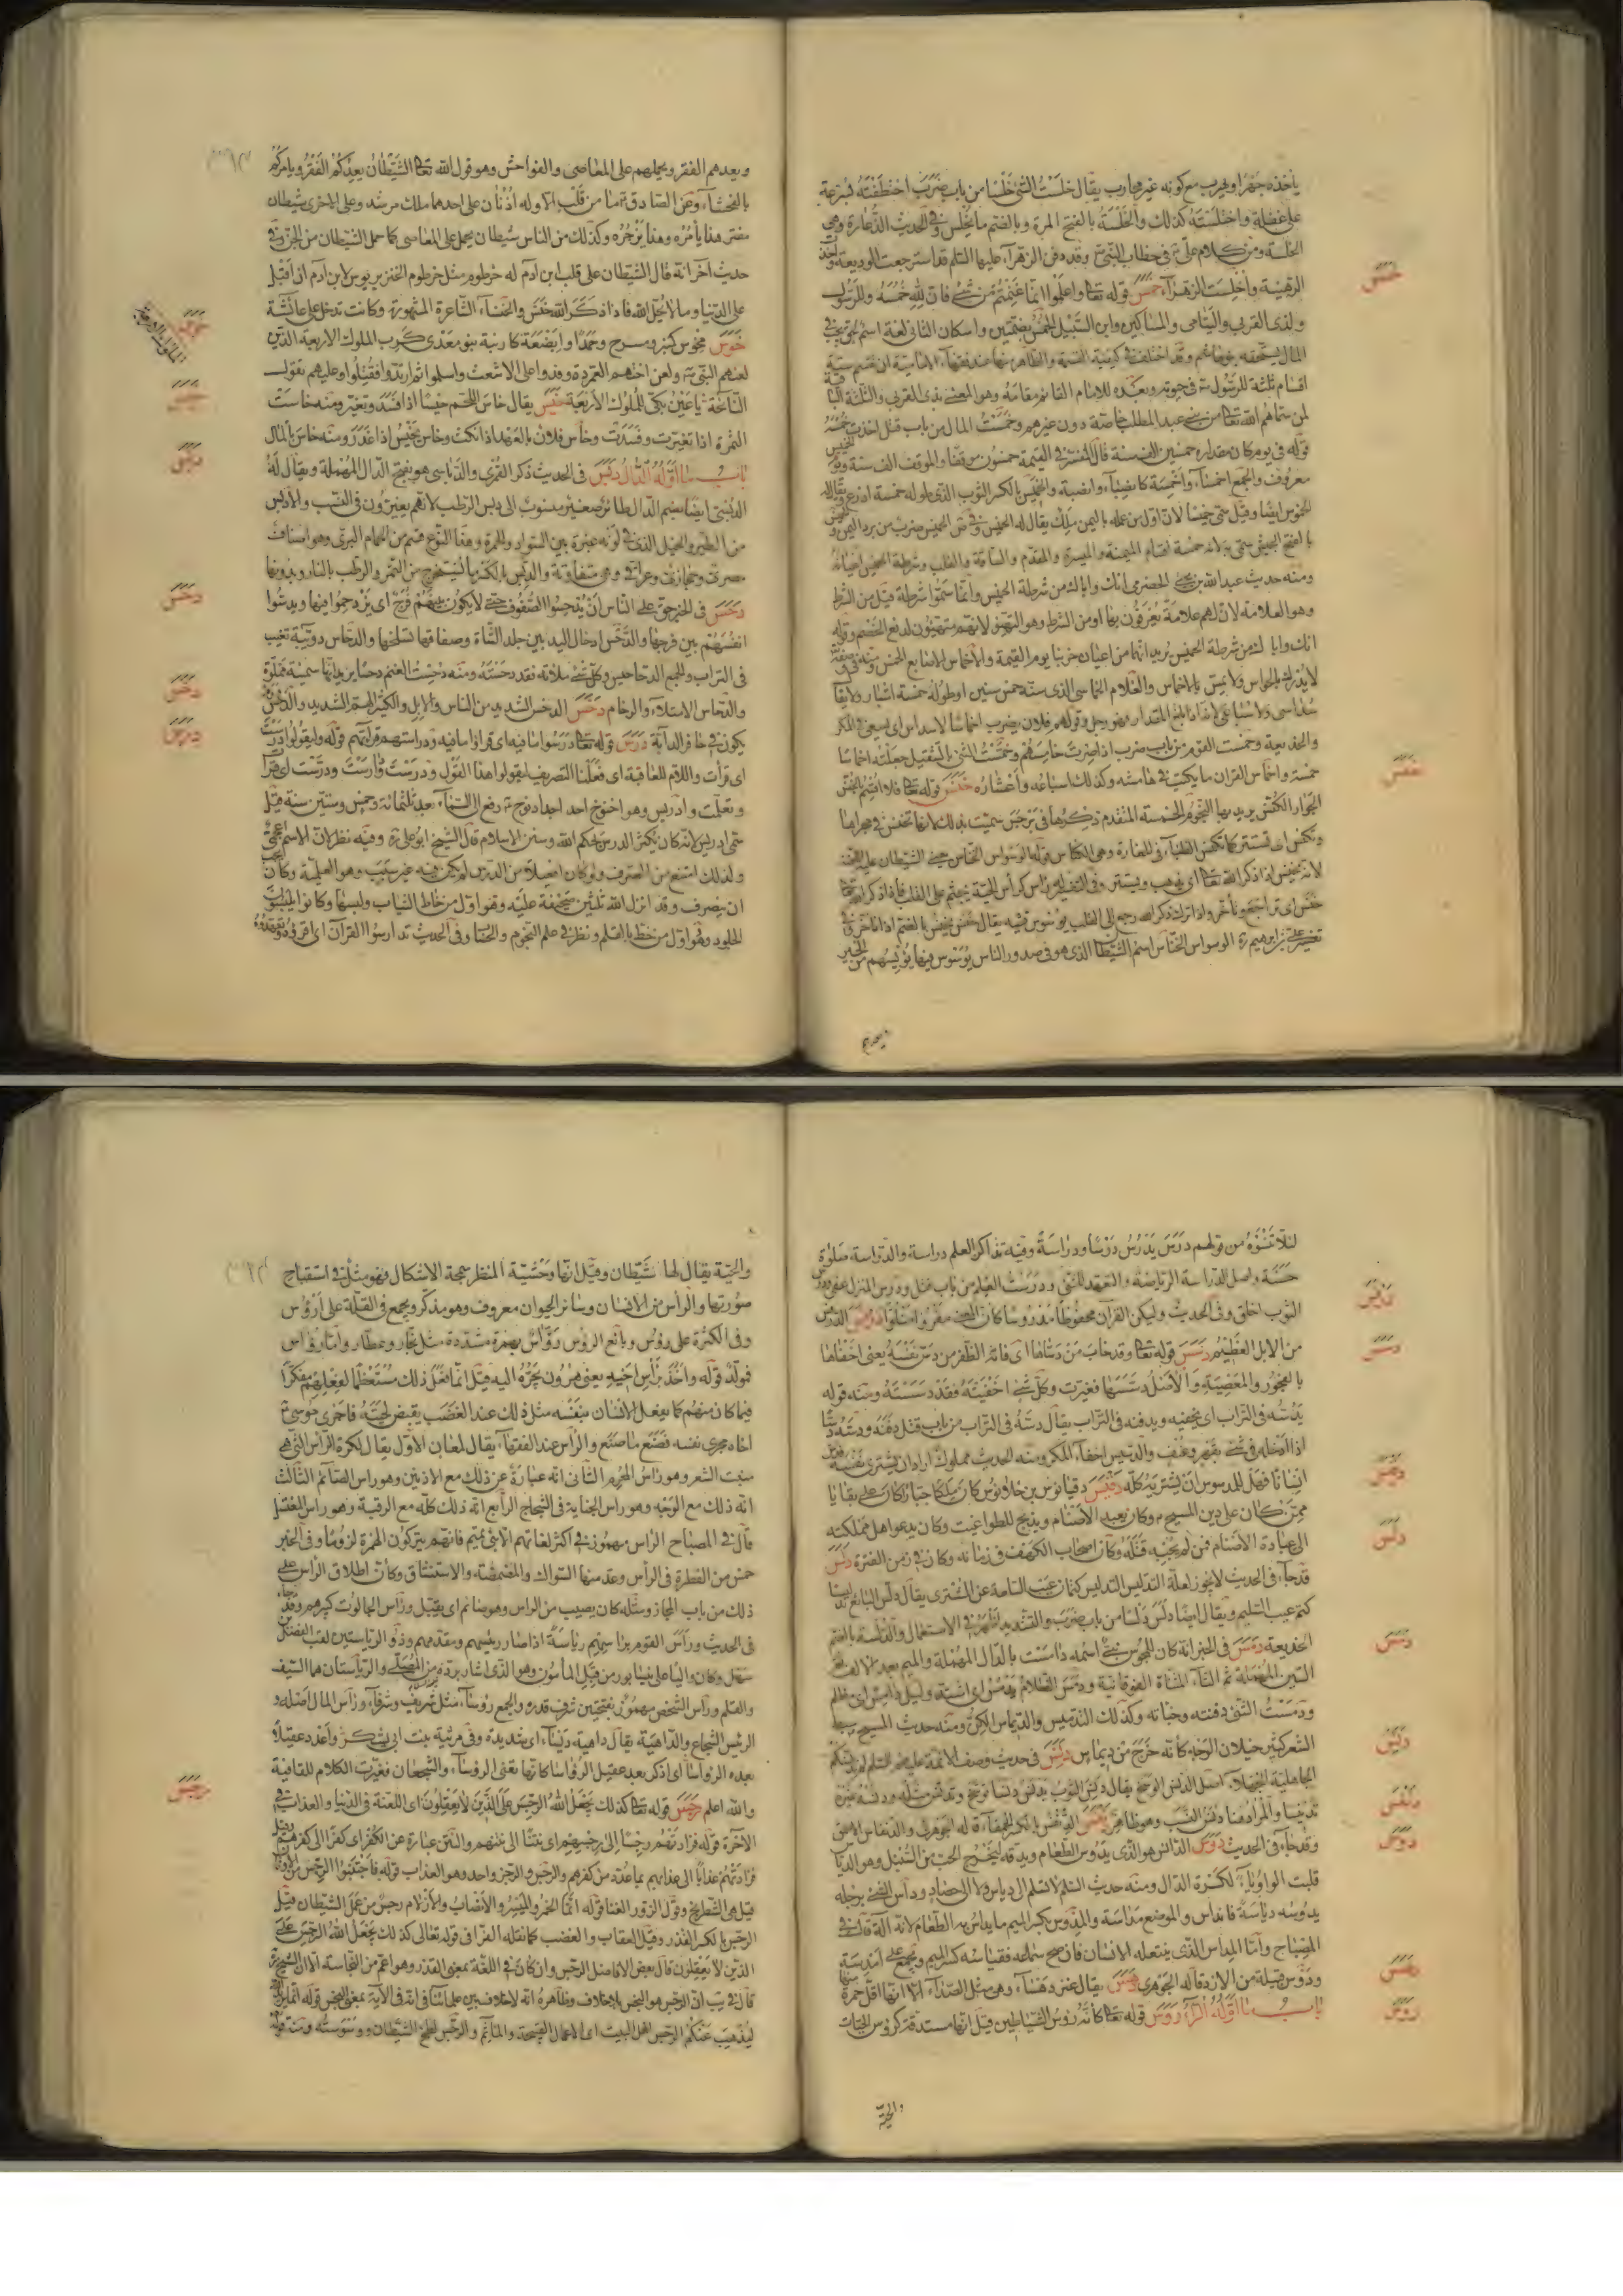 يأخذه جهرا ويهرب مع كونه غير محارب يقال خلست الشئ خلسا من باب ضرب اختطفته بسرعة
على غفلة واختلسته كذلك والخلسة بالفتح المرة وبالضم ما يخلس وفى الحديث الدغارة وهى
الخلسة ومن كلام على ع فى خطاب النبى ص وقد دفن الزهرآء عليها السلم قد استرجعت الوديعة واخذت
الرهينة واخلست الزهرآء خمس قوله تعا واعلموا انما غنمتم من شئ فان لله خمسه وللرسول
ولذى القربى واليتامى والمساكين وابن السبيل الخمس بضمتين واسكان الثانى لغة اسم لحق يجب فى
المال يستحقه بنو هاشم وقد اختلف فى كيفية القسمة والظاهر منها عند فقهآء الامامية ان يقسم ستة
اقسام ثلثة للرسول ص فى حيوته وبعده للامام القائم مقامه وهو المعنى بذى القربى والثلثة الباقية
لمن سماهم الله تعا من بنى عبد المطلب خاصة دون غيرهم وخمست المال من باب قتل اخذت خمسه
قوله فى يوم كان مقداره خمسين الف سنة قال المفسر فى القيمة خمسون موقفا والموقف الف سنة ويوم الخميس
معروف والجمع اخمسآء واخمسة كانصبآء وانصبة والخميس بالكسر الثوب الذى طوله خمسة اذرع ويقال له
المخموس ايضا وقيل سمى خميسا لان اول من عمله باليمن ملك يقال له الخميس وفى ص الخميس ضرب من برد اليمن والخميس
بالفتح الجيش سمى به لانه خمسة اقسام الميمنة والميسرة والمقدم والساقة والقلب وشرطة الخميس اعيانه
ومنه حديث عبد الله بن يحيى الحضرمى انك واباك من شرطة الخميس وانما سموا شرطة قيل من الشرط
وهو العلامة لان لهم علامة يعرفون بها او من الشرط وهو التهيؤ لانهم متهيئون لدفع الخصم وقوله
انك واباك من شرطة الخميس يريد انهما من اعيان حزبنا يوم القيمة والاخماس الاصابع الخمس ومنه فى وصفه تعا
لا يدرك بالحواس ولا يمس بالاخماس والغلام الخماسى الذى سنه خمس سنين او طوله خمسة اشبار ولا يقال
سداسى ولا سباعى لانه اذا بلغ المقدار فهو رجل وقولهم فلان يضرب اخماسا لاسداس اى يسعى فى المكر
والخديعة وخمست القوم من باب ضرب اذا صرت خامسهم وخمست الشئ بالتثقيل جعلته اخماسا
خمسة واخماس القرآن ما يكتب فى هامشه وكذلك اسباعه واعشاره خنس قوله تعا فلا اقسم بالخنس
الجوار الكنس يريد بها النجوم الخمسة المتقدم ذكرها فى برجس سميت بذلك لانها تخنس فى مجراها
وتكنس اى تستتر كما تكنس الظبآء فى المغارة وهى الكناس قوله الوسواس الخناس يعنى الشيطان عليه اللعنة
لانه يخنس اذا ذكر الله تعا اى يذهب ويستتر وفى التفسير له رأس كرأس الحية يجثم على القلب فاذا ذكر الله تعا
خنس اى تراجع وتأخر واذا ترك ذكر الله رجع الى القلب يوسوس فيه يقال خنس يخنس بالضم اذا تأخر وفى
تفسير على بن ابرهيم ره الوسواس الخناس اسم الشيطان الذى هو فى صدور الناس يوسوس فيها يؤيسهم من الخير
ويعدهم
ويعدهم الفقر ويحملهم على المعاصى والفواحش وهو قول الله تعا الشيطان يعدكم الفقر ويامركم
بالفحشآء وعن الصادق ع ما من قلب الا وله اذنان على احدهما ملك مرشد وعلى الاخرى شيطان
مفتر هذا يأمره وهذا يزجره وكذلك من الناس شيطان يحمل على المعاصى كما حمل الشيطان من الجن وفى
حديث آخر انه قال الشيطان على قلب ابن ادم له خرطوم مثل خرطوم الخنزير يوسوس لابن آدم ان اقبل
على الدنيا وما لا يحل الله فاذا ذكر الله خنس والخنسآء الشاعرة المشهورة وكانت تدخل على عائشة
خوس مخوس كمنبر ومسرح وجمدا وابضعة كاربنة بنو معدى كرب الملوك الاربعة الذين
لعنهم النبى ص ولعن اختهم العمردة وفدوا على الاشعث واسلموا ثم ارتدوا فقتلوا وعليهم تقول
النائحة يا عين بكى للملوك الاربعة خيس يقال خاس اللحم خيسا اذا فسد وتغير ومنه خاست
الثمرة اذا تغيرت وفسدت وخاس فلان بالعهد اذا نكث وخاس يخيس اذا غدر ومنه خاس بالمال
باب ما اوله الدال دبس فى الحديث ذكر القمرى والدباسى هو بفتح الدال المهملة ويقال له
الدبسى ايضا بضم الدال طائر صغير منسوب الى دبس الرطب لانهم يغيرون فى النسب والادبس
من الطير والخيل الذى فى لونه غبرة بين السواد والحمرة وهذا النوع قسم من الحمام البرى وهو اصناف
مصرى وحجازى وعراقى وهى متفاوتة والدبس بالكسر ما يستخرج من التمر والرطب بالنار وبدونها
دحس فى الخبر حق على الناس ان يدحسوا الصفوف حتى لا يكون بينهم فرج اى يزدحموا فيها ويدسوا
انفسهم بين فرجها والدحس ادخال اليد بين جلد الشاة وصفاقها تسلخها والدحاس دويبة تغيب
فى التراب والجمع الدحاحيس وكل شئ ملاته فقد دحسته ومنه دحست الغنم دحسا يريد انها سمينة مملوة
والدحاس الامتلاء والزحام دخس الدخس الشديد من الناس والابل والكثير اللحم الشديد والدخس ورم
يكون فى حافر الدابة درس قوله تعا درسوا ما فيه اى قراوا ما فيه ودراستهم قرائتهم قوله وليقولوا درست
اى قرأت واللام للعاقبة اى فعلنا التصريف ليقولوا هذا القول ودرست ودارست ودرست اى قرا
وتعلمت وادريس وهو اخنوخ احد اجداد نوح ع رفع الى السمآء بعد ثلثمائة وخمس وستين سنة قيل
سمى ادريس لانه كان يكثر الدرس لحكم الله وسنن الاسلام قال الشيخ ابو على ره وفيه نظر لان الاسم عجمى
ولذلك امتنع من الصرف ولو كان افعيلا من الدرس لم يكن فيه غير سبب وهو العلمية وكان يجب
ان ينصرف وقد انزل الله ثلثين صحيفة عليه وهو اول من خاط الثياب ولبسها وكانوا يلبسون
الجلود وهو اول من خط بالقلم ونظر فى علم النجوم والحساب وفى الحديث تدارسوا القرآن اى اقرؤه وتعهدوه
لئلا تنسوه من قولهم درس يدرس درسا ودراسة وفيه تذاكر العلم دراسة والدراسة صلوة
حسنة واصل الدراسة الرياضة والتعهد للشئ ودرست العلم من باب قتل ودرس المنزل عفى ودرس
الثوب اخلق وفى الحديث وليكن القرآن محفوظا مدروسا كان المعنى مقروا متلوا درمس الدرمس
من الابل العظيم دسس قوله تعا وقد خاب من دساها اى فاته الظفر من دس نفسه يعنى اخفاها
بالفجور والمعصية والاصل دسسها فغيرت وكل شئ اخفيته فقد دسسته ومنه قوله
يدسه فى التراب اى يخفيه ويدفنه فى التراب يقال دسه فى التراب من باب قتل دفنه ودسه دسا
اذا ادخله فى شئ بقهر وعنف والدسيس اخفاء المكر ومنه الحديث مملوك اراد ان يشترى نفسه فدس
انسانا فهل للمدسوس ان يشتريه كله دقيس دقيانوس بن خلانوس كان ملكا جبارا كان على بقايا
ممن كان على دين المسيح ع وكان يعبد الاصنام ويذبح للطواغيت وكان يدعو اهل مملكته
الى عبادة الاصنام فمن لم يجبه قتله وكان اصحاب الكهف فى زمانه وكان فى زمن الفترة دلس
قد جآء فى الحديث لا يجوز لعلة التدليس التدليس كتمان عيب السلعة عن المشترى يقال دلس البائع تدليسا
كتم عيب السلعة ويقال ايضا دلس دلسا من باب ضرب والتشديد اشهر فى الاستعمال والدلسة بالضم
الخديعة دمس فى الخبر انه كان للمجوس نبى اسمه دامست بالدال المهملة والميم بعد الالف ثم
السين المهملة ثم التاء المثناة الفوقانية ودمس الظلام يدمس اى اشتد وليل دامس اى مظلم
ودمست الشئ دفنته وخباته وكذلك التدميس والديماس الكن ومنه حديث المسيح سبط
الشعر كثير خيلان الوجه كانه خرج من ديماس دنس فى حديث وصف الائمة عليهم السلم لم تدنسكم
الجاهلية الجهلآء اصل الدنس الوسخ يقال دنس الثوب يدنس دنسا توسخ وتدنس مثله ودنسه غيره
تدنيسا والمراد هنا دنس النسب وهو ظاهر دنفس الدنفس بالكسر الحمقآء قاله الجوهرى والدنفاس الاحمق
وقد جآء فى الحديث دوس الدائس هو الذى يدوس الطعام ويدقه ليخرج الحب من السنبل وهو الدياس
قلبت الواو ياء لكسرة الدال ومنه حديث السلم لا تسلم الى دياس ولا الى حصاد وداس الشئ برجله
يدوسه دياسة فانداس والموضع مداسة والمدوس بكسر الميم ما يداس به الطعام لانه آلة قال فى
المصباح واما المداس الذى ينتعله الانسان فان صح سماعه فقياسه كسر الميم ويجمع على امدسة
ودوس قبيلة من الازد قاله الجوهرى دهس يقال عنز دهسآء وهى مثل الصدآء الا انها اقل حمرة منها
باب ما اوله الراء روس قوله تعا كانه رؤس الشياطين قيل انها مستدقة كرؤس الحيات
والحية
والحية يقال لها شيطان وقيل انها وحشية المنظر سمجة الاشكال فهو مثل فى استقباح
صورتها والرأس من الانسان وسائر الحيوان معروف وهو مذكر ويجمع فى القلة على ارؤس
وفى الكثرة على رؤس وبائع الرؤس رءّاس بهمزة مشددة مثل نجار وعطار واما رواس
فمولد قوله واخذ برأس اخيه يعنى هرون يجره اليه قيل انما فعل ذلك مستعظما لفعلهم مفكرا
فيما كان منهم كما يفعل الانسان بنفسه مثل ذلك عند الغضب يقبض لحيته فاجرى موسى ع
اخاه مجرى نفسه فصنع ما صنع والرأس عند الفقهآء يقال لمعان الاول يقال لكرة الرأس التى هى
منبت الشعر وهو راس المحرم الثانى انه عبارة عن ذلك مع الاذنين وهو راس الصائم الثالث
انه ذلك مع الوجه وهو راس الجناية فى الشجاج الرابع انه ذلك كله مع الرقبة وهو راس المغتسل
قال فى المصباح الراس مهموز فى اكثر لغاتهم الا بنى تميم فانهم يتركون الهمزة لزوما وفى الخبر
خمس من الفطرة فى الرأس وعد منها السواك والمضمضة والاستنشاق وكان اطلاق الرأس على
ذلك من باب المجاز ومثله كان يصيب من الراس وهو صائم اى يقبل ورأس الجالوت كبيرهم وقد جآء
فى الحديث ورأس القوم يرأسهم رياسة اذا صار رئيسهم ومقدمهم وذو الرياستين لقب الفضل بن
سهل وكان واليا على نيسابور من قبل المأمون وهو الذى اشار برده من المصلى والرياستان هما السيف
والقلم ورأس الشخص مهموز بفتحتين شرف قدره والجمع رؤسآء مثل شريف وشرفآء ورأس المال اصله و
الرئيس الشجاع والداهية يقال داهية ربسآء اى شديدة وفى مرثية بنت ابى يشكر واعدد عقيلا
بعده الرواسا اى اذكر بعد عقيل الرواسا كانها تعنى الرؤسآء والشجعان فغيرت الكلام للقافية
والله اعلم رجس قوله تعا كذلك يجعل الله الرجس على الذين لا يعقلون اى اللعنة فى الدنيا والعذاب فى
الآخرة قوله فزادتهم رجسا الى رجسهم اى نتنا الى نتنهم والنتن عبارة عن الكفر اى كفرا الى كفرهم وقيل
فزادتهم عذابا الى عذابهم بما تجدد من كفرهم والرجس والرجز واحد وهو العذاب قوله فاجتنبوا الرجس من الاوثان
قيل هى الشطرنج وقول الزور الغنا قوله انما الخمر والميسر والانصاب والازلام رجس من عمل الشيطان قيل
الرجس بالكسر القذر وقيل العقاب والغضب كما نقله الفرا فى قوله تعالى كذلك يجعل الله الرجس على
الذين لا يعقلون قال بعض الافاضل الرجس وان كان فى اللغة بمعنى القذر وهو اعم من النجاسة الا ان الشيخ ره
قال فى يب ان الرجس هو النجس بلا خلاف وظاهره انه لا خلاف بين علمائنا فى انه فى الآية بمعنى النجس قوله انما يريد الله
ليذهب عنكم الرجس اهل البيت اى الاعمال القبيحة والمآثم والرجس لطخ الشيطان ووسوسته ومنه قوله